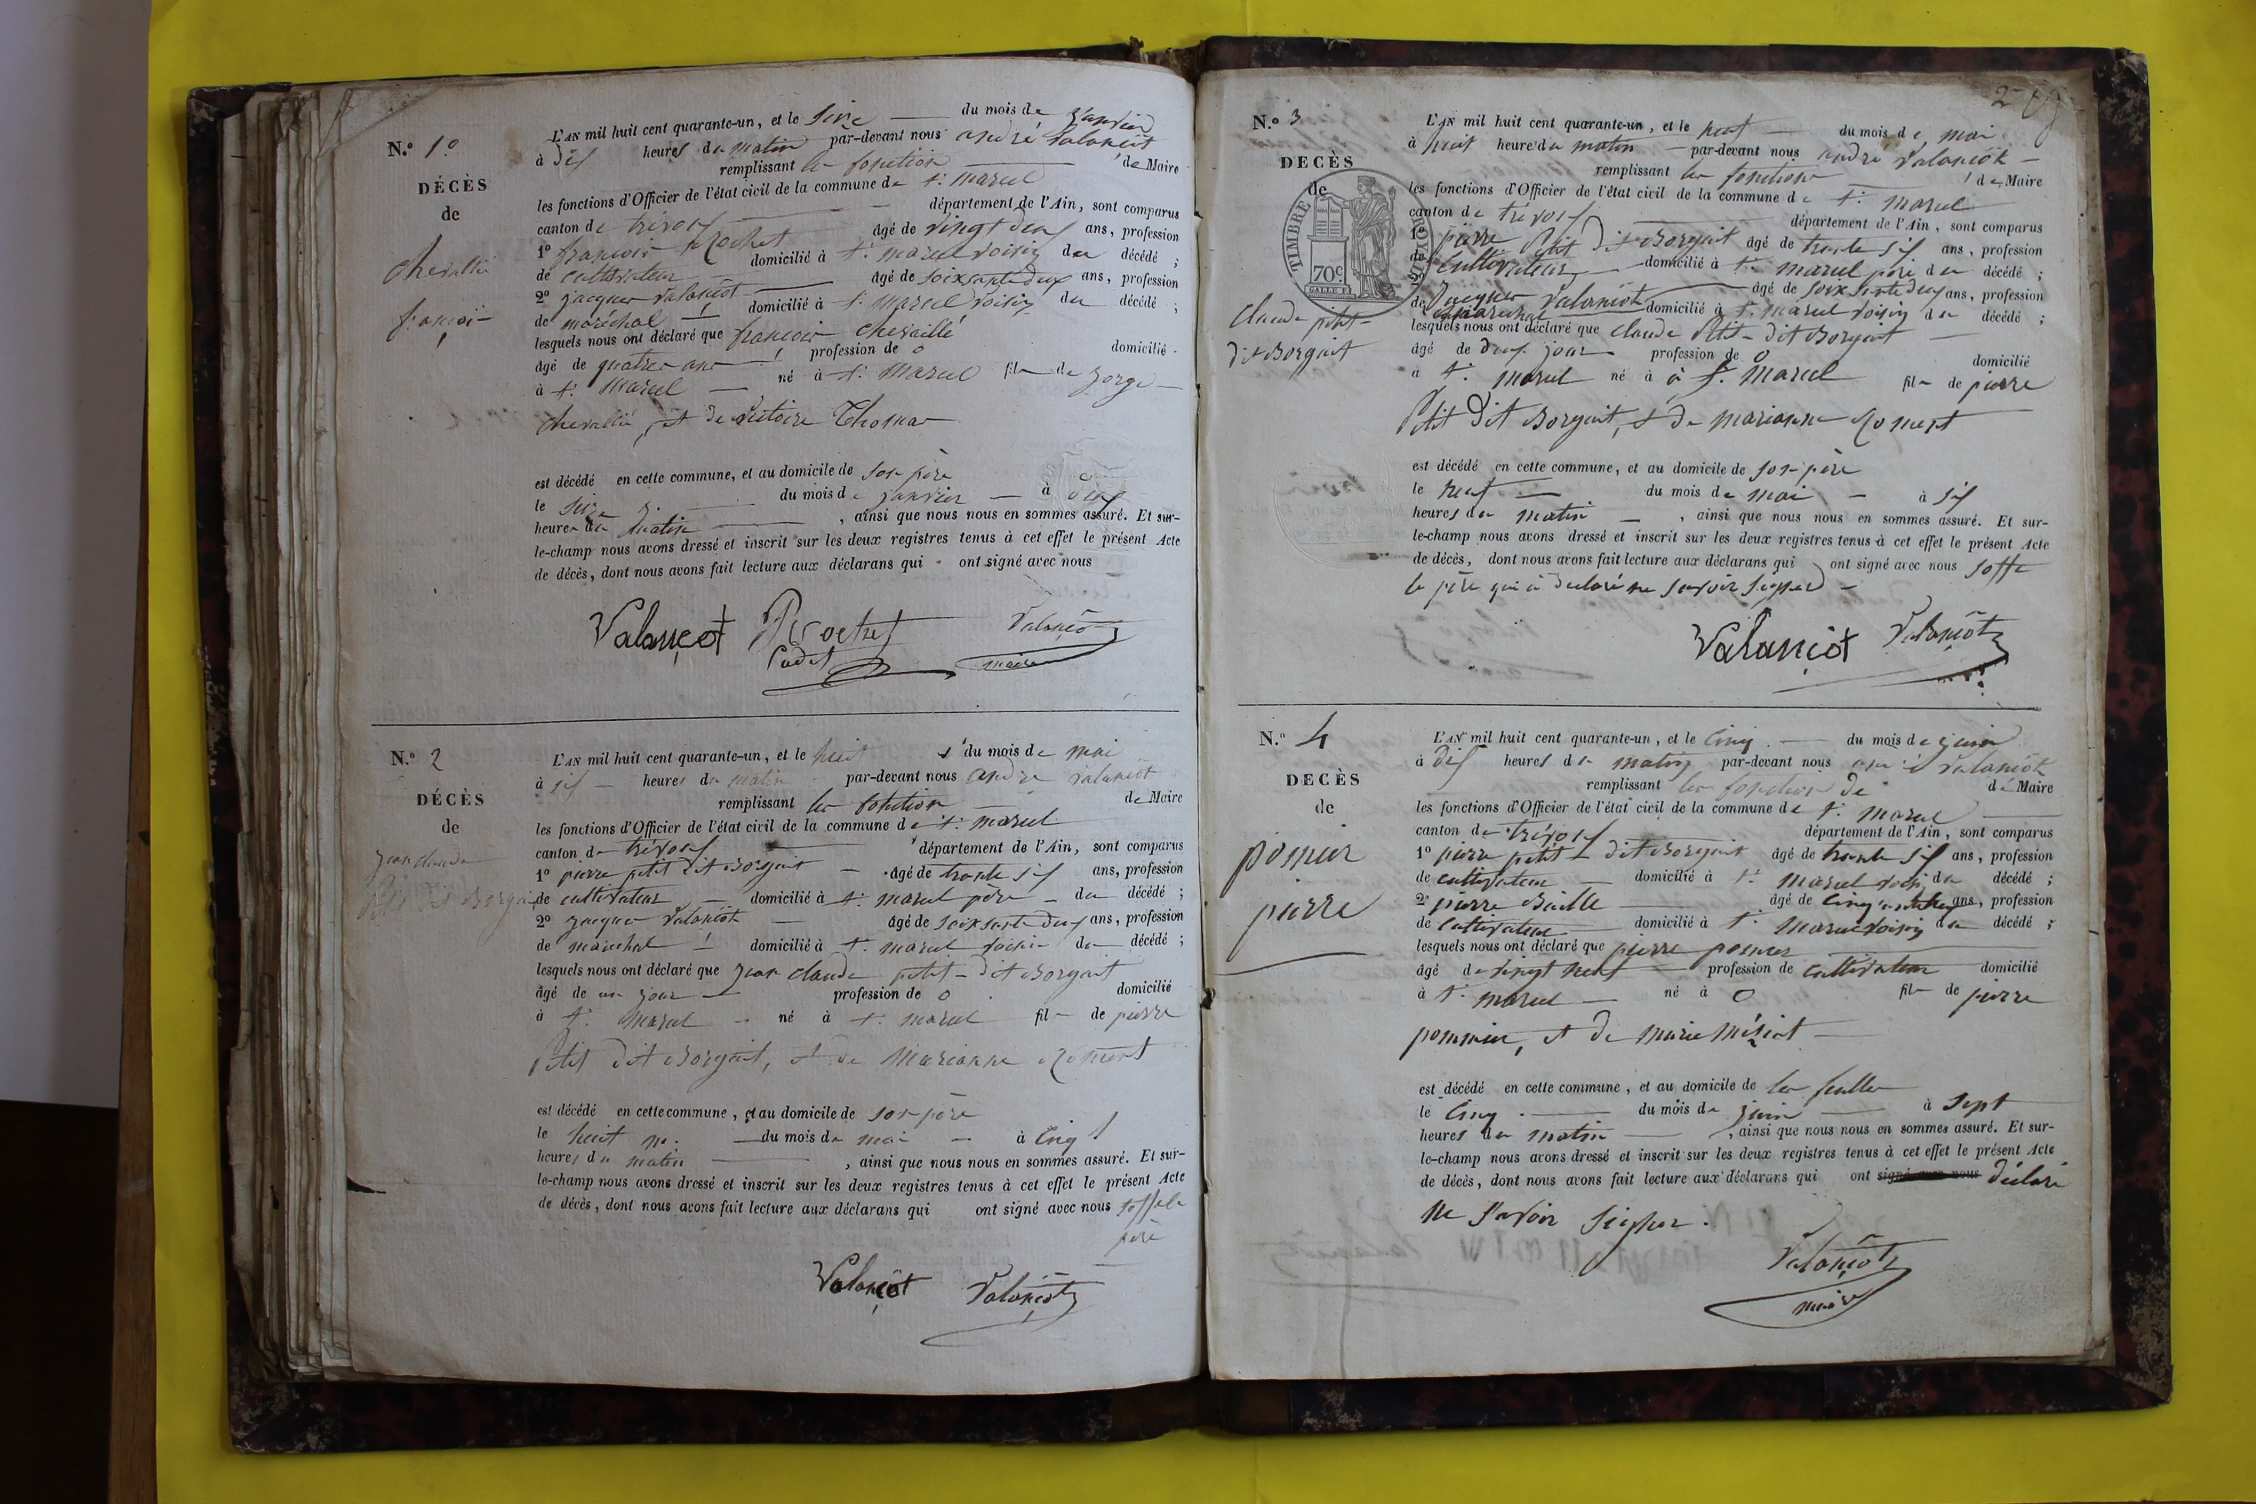 N.º 1º
DÉCÈS
de
chevallié
françoi
L'AN mil huit cent quarante-un, et le seize du mois de janvier
à dix heures du matin par-devant nous andré Valançot
remplissant les fonction de Maire
les fonctions d'Officier de l'état civil de la commune de st marcel
canton de trévoux département de l'Ain, sont comparus
1º françois Rochet âgé de vingt deux ans, profession
de cultivateur domicilié à st marcel voisin du décédé ;
2º jacques Valançot âgé de soixsante deux ans, profession
de maréchal domicilié à st marcel voisin du décédé ;
lesquels nous ont déclaré que françois chevallié
âgé de quatre ans profession de 0 domicilié
à st marcel né à st marcel fils de jorge
chevallié, et de victoire Thomas
est décédé en cette commune, et au domicile de son père
le seize du mois de janvier à
heures du matin , ainsi que nous nous en sommes assuré. Et sur-
le-champ nous avons dressé et inscrit sur les deux registres tenus à cet effet le présent Acte
de décès, dont nous avons fait lecture aux déclarans qui ont signé avec nous
Valançot Rochet Valançot
Cadet maire
N.º 2
DÉCÈS
de
jean claude
petit dit Borgait
L'AN mil huit cent quarante-un, et le huit du mois de mai
à six heures du matin par-devant nous andré Valançot
remplissant les fonction de Maire
les fonctions d'Officier de l'état civil de la commune de st marcel
canton de trévoux département de l'Ain, sont comparus
1º pierre petit dit Borgait âgé de trante six ans, profession
de cultivateur domicilié à st marcel père du décédé ;
2º jacques Valançot âgé de soixsante deux ans, profession
de maréchal domicilié à st marcel voisin du décédé ;
lesquels nous ont déclaré que jean claude petit dit Borgait
âgé de un jour profession de 0 domicilié
à st marcel né à st marcel fils de pierre
Petit dit Borgait, et de Marianne Roment
est décédé en cette commune, et au domicile de son père
le huit du mois de mai à cinq
heures du matin , ainsi que nous nous en sommes assuré. Et sur-
le-champ nous avons dressé et inscrit sur les deux registres tenus à cet effet le présent Acte
de décès, dont nous avons fait lecture aux déclarans qui ont signé avec nous soffe le
père
Valançot Valançot
N.º 3
DECÈS
de
TIMBRE ROYAL
70c
claude petit
dit Borgait
L'AN mil huit cent quarante-un, et le neuf du mois de mai
à huit heures du matin par-devant nous andré Valançot
remplissant les fonction de Maire
les fonctions d'Officier de l'état civil de la commune de st marcel
canton de trévoux département de l'Ain, sont comparus
1º pierre Petit dit Borgait âgé de trante six ans, profession
de cultivateur domicilié à st marcel père du décédé ;
2º jacques Valançot âgé de soixsante deux ans, profession
de maréchal domicilié à st marcel voisin du décédé ;
lesquels nous ont déclaré que claude Petit dit Borgait
âgé de deux jours profession de 0 domicilié
à st marcel né à à st marcel fils de pierre
Petit Dit Borgait, et de marianne Roment
est décédé en cette commune, et au domicile de son père
le neuf du mois de mai à six
heures du matin , ainsi que nous nous en sommes assuré. Et sur-
le-champ nous avons dressé et inscrit sur les deux registres tenus à cet effet le présent Acte
de décès, dont nous avons fait lecture aux déclarans qui ont signé avec nous soffe
le père qui a declaré ne savoir signer
Valançot Valançot
N.º 4
DECÈS
de
pomier
pierre
L'AN mil huit cent quarante-un, et le cinq du mois de juin
à dix heures du matin par-devant nous andré Valançot
remplissant les fonction de de Maire
les fonctions d'Officier de l'état civil de la commune de st marcel
canton de trévoux département de l'Ain, sont comparus
1º pierre petit dit Borgait âgé de trante six ans, profession
de cultivateur domicilié à st marcel voisin du décédé ;
2º pierre Baille âgé de ans, profession
de cultivateur domicilié à st marcel voisin du décédé ;
lesquels nous ont déclaré que pierre pomier
âgé de vingt neuf profession de cultivateur domicilié
à st marcel né à 0 fils de pierre
pommier, et de marie Méziat
est décédé en cette commune, et au domicile de
le cinq du mois de juin à sept
heures du matin , ainsi que nous nous en sommes assuré. Et sur-
le-champ nous avons dressé et inscrit sur les deux registres tenus à cet effet le présent Acte
de décès, dont nous avons fait lecture aux déclarans qui ont signé avec nous déclaré
ne savoir signer.
Valançot
maire